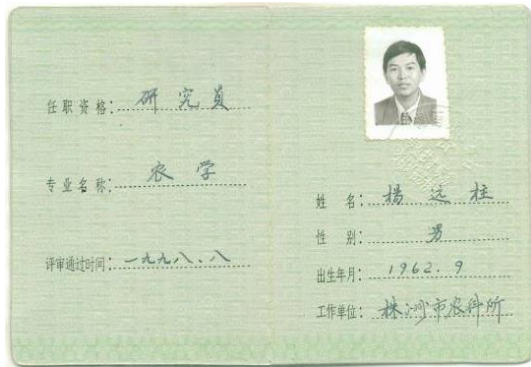 任职资格：研究员
专业名称：农学
评审通过时间：一九九八.八
姓 名：杨远柱
性 别：男
出生年月：1962.9
工作单位：株洲市农科所